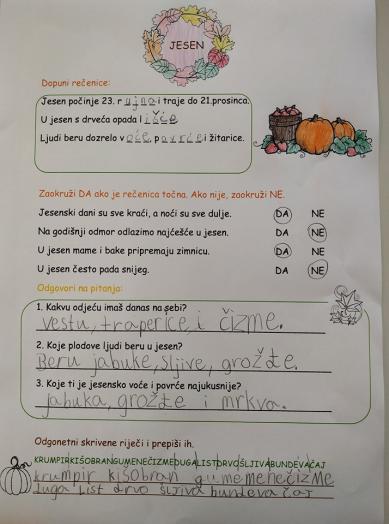 JESEN
Dopuni rečenice:
Jesen počinje 23. rujna i traje do 21.prosinca.
U jesen s drveća opada lišće.
Ljudi beru dozrelo voće, povrće i žitarice.
Zaokruži DA ako je rečenica točna. Ako nije, zaokruži NE.
Jesenski dani su sve kraći, a noći su sve dulje. DA NE
Na godišnji odmor odlazimo najčešće u jesen. DA NE
U jesen mame i bake pripremaju zimnicu. DA NE
U jesen često pada snijeg. DA NE
Odgovori na pitanja:
1. Kakvu odjeću imaš danas na sebi?
Vestu, traperice, i čizme.
2. Koje plodove ljudi beru u jesen?
Beru jabuke, šljive, grožđe.
3. Koje ti je jesensko voće i povrće najukusnije?
jabuka, grožđe i mrkva.
Odgonetni skrivene riječi i prepiši ih.
KRUMPIRKIŠOBRANGUMENEČIZMEDUGALISTDRVOŠLJIVABUNDEVAČAJ
krumpir kišobran gumemene čizme
duga list drvo šljiva bundeva čaj